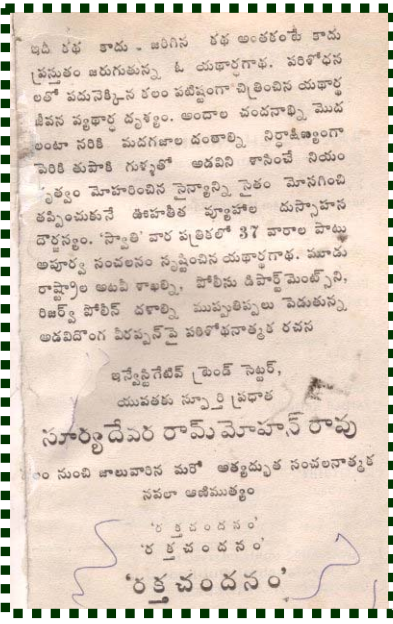 ఇది కథ కాదు - జరిగిన కథ అంతకంటే కాదు
ప్రస్తుతం జరుగుతున్న ఓ యథార్థగాథ. పరిశోధన
లతో పదునెక్కిన కలం పటిష్టంగా చిత్రించిన యథార్థ
జీవన వ్యథార్థ దృశ్యం. అందాల చందనాల్ని మొద
లంటా నరికి మదగజాల దంతాల్ని నిర్దాక్షిణ్యంగా
పెరికి తుపాకి గుళ్ళతో అడవిని శాసించే నియం
తృత్వం మోహరించిన సైన్యాన్ని సైతం మోసగించి
తప్పించుకునే ఊహాతీత వ్యూహాల దుస్సాహస
దౌర్జన్యం. 'స్వాతి' వార పత్రికలో 37 వారాల పాటు
అపూర్వ సంచలనం సృష్టించిన యథార్థగాథ. మూడు
రాష్ట్రాల అటవీ శాఖల్ని, పోలీసు డిపార్ట్‌మెంట్స్‌ని,
రిజర్వ్ పోలీస్ దళాల్ని ముప్పుతిప్పలు పెడుతున్న
అడవిదొంగ వీరప్పన్‌పై పరిశోధనాత్మక రచన
ఇన్వేస్టిగేటివ్ ట్రెండ్ సెట్టర్,
యువతకు స్ఫూర్తి ప్రధాత
సూర్యదేవర రామ్‌మోహన్ రావు
నుంచి జాలువారిన మరో అత్యద్భుత సంచలనాత్మక
నవలా ఆణిముత్యం
'రక్తచందనం'
'రక్తచందనం'
'రక్తచందనం'